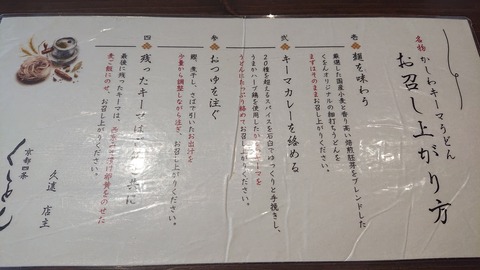 名物
かしわキーマうどん
お召し上がり方
壱
麺を味わう
厳選した国産小麦と香り高い焙煎胚芽をブレンドした
くをんオリジナルの細打ちうどんを
まずはそのままお召し上がりください。
弐
キーマカレーを絡める
20種を超えるスパイスを石臼でゆっくりと手挽きし、
うまかハーブ鶏を使用した
キーマを
うどんにたっぷり絡めてお召し上がりください。
参
おつゆを注ぐ
鰹、煮干し、さばで引いたお出汁を
少量から調整しながら注ぎ、お召し上がりください。
四
残ったキーマは
共に
最後に残ったキーマは、
卵黄をのせた
麦ご飯にのせ、お召し上がりください。
京都四条
久遠 店主